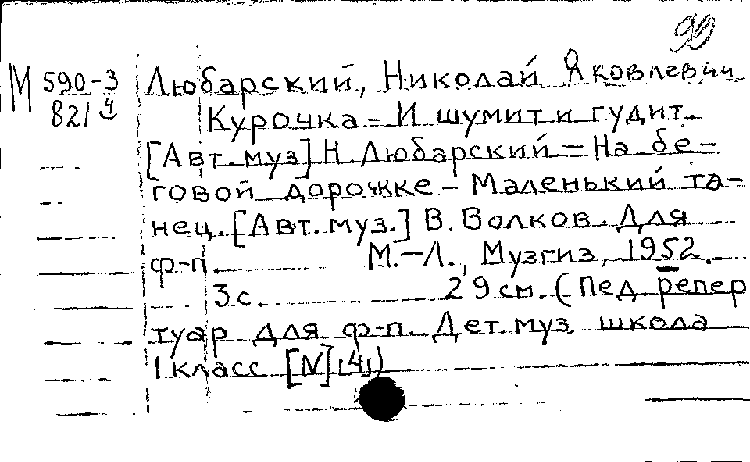 99
М 590-3 Любарский, Николай Яковлевич
821 Курочка – И шумит и гудит.
[Авт. муз.] Н. Любарский – На бе-
говой дорожке – Маленький та-
нец. [Авт. муз.] В. Волков. Для
ф-п. М.–Л., Музгиз, 1952.
3 с. 29 см. (Пед. репер
туар для ф-п. Дет. муз. школа
I класс [N] (4))